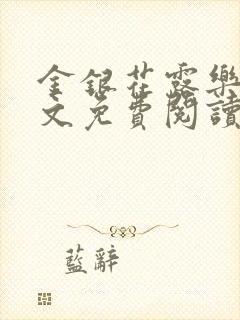 金銀花露樂
文免費閱讀
藍辭